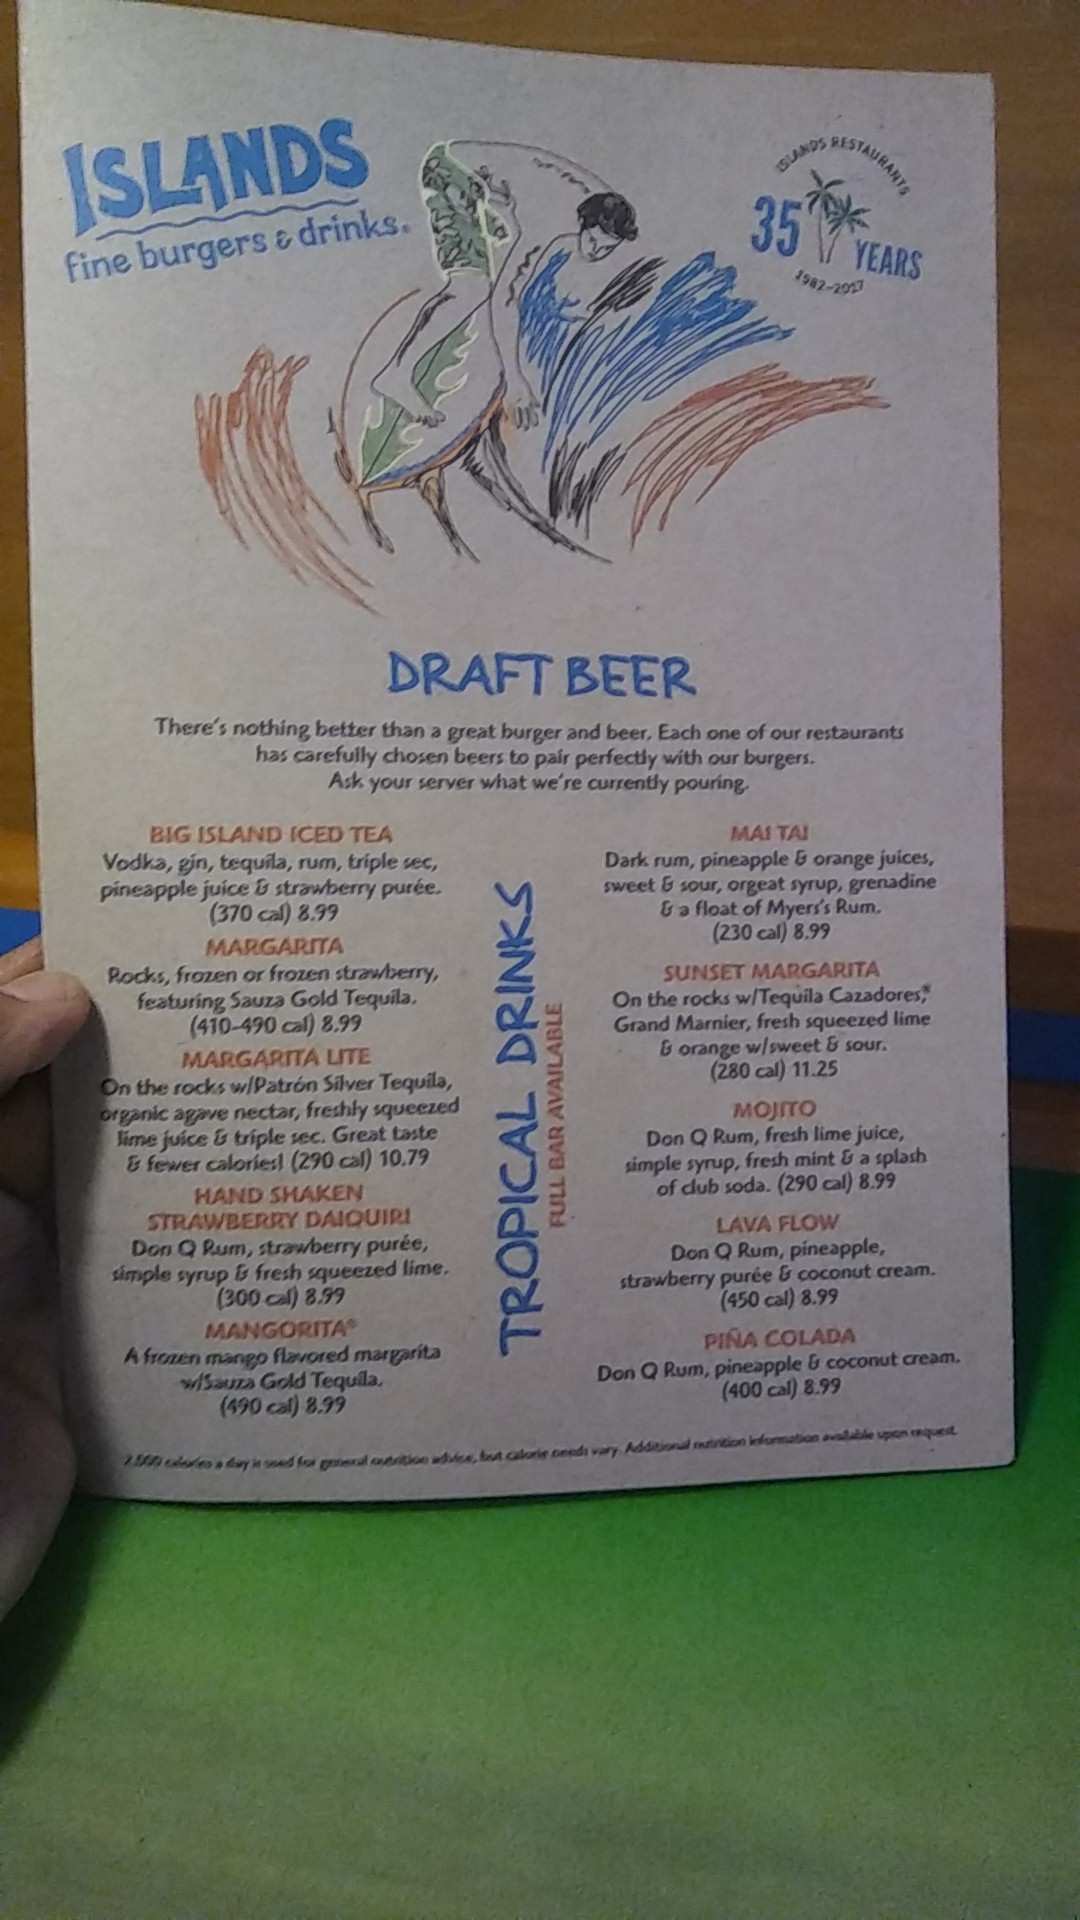 ISLANDS
fine burgers & drinks.
ISLANDS RESTAURANTS
35 YEARS
1982-2017
DRAFT BEER
There's nothing better than a great burger and beer. Each one of our restaurants
has carefully chosen beers to pair perfectly with our burgers.
Ask your server what we're currently pouring.
BIG ISLAND ICED TEA
Vodka, gin, tequila, rum, triple sec,
pineapple juice & strawberry purée.
(370 cal) 8.99
MARGARITA
Rocks, frozen or frozen strawberry,
featuring Sauza Gold Tequila.
(410-490 cal) 8.99
MARGARITA LITE
On the rocks w/Patrón Silver Tequila,
organic agave nectar, freshly squeezed
lime juice & triple sec. Great taste
& fewer calories! (290 cal) 10.79
HAND SHAKEN
STRAWBERRY DAIQUIRI
Don Q Rum, strawberry purée,
simple syrup & fresh squeezed lime.
(300 cal) 8.99
MANGORITA®
A frozen mango flavored margarita
w/Sauza Gold Tequila.
(490 cal) 8.99
TROPICAL DRINKS
FULL BAR AVAILABLE
MAI TAI
Dark rum, pineapple & orange juices,
sweet & sour, orgeat syrup, grenadine
& a float of Myers's Rum.
(230 cal) 8.99
SUNSET MARGARITA
On the rocks w/Tequila Cazadores,®
Grand Marnier, fresh squeezed lime
& orange w/sweet & sour.
(280 cal) 11.25
MOJITO
Don Q Rum, fresh lime juice,
simple syrup, fresh mint & a splash
of club soda. (290 cal) 8.99
LAVA FLOW
Don Q Rum, pineapple,
strawberry purée & coconut cream.
(450 cal) 8.99
PIÑA COLADA
Don Q Rum, pineapple & coconut cream.
(400 cal) 8.99
2,000 calories a day is used for general nutrition advice, but calorie needs vary. Additional nutrition information available upon request.